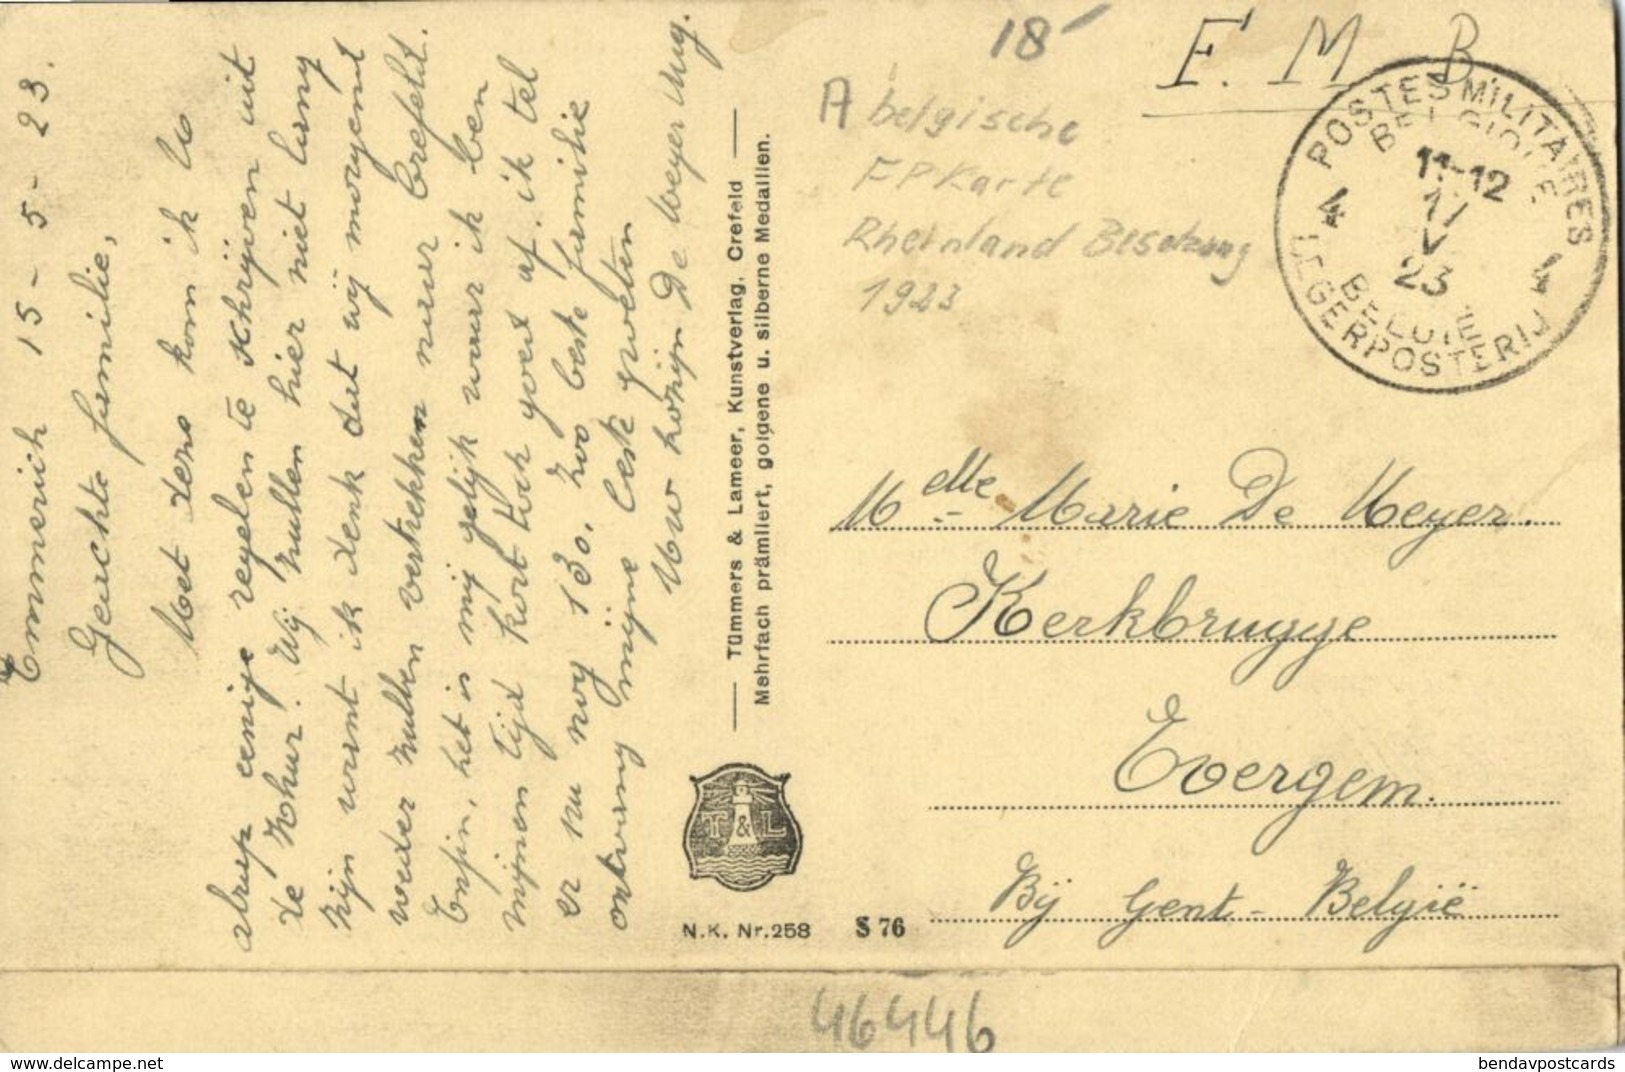 Emmerich 15 - 5 - 23.
Geachte familie,
Met dezs kom ik U
eenige regelen te schrijven uit
Wij zullen hier niet lang
zijn want ik denk dat wij morgend
weder zullen vertrekken naar Crefeld.
Enfin, het is mij gelijk waar ik ben
mijnen tijd kort toch goed af. ik tel
er nu nog 130. Zoo beste familie
ontvang mijne beste groeten
Uw kozijn De Meyer Aug.
Tümmers & Lameer, Kunstverlag, Crefeld
Mehrfach prämiiert, golgene u. silberne Medaillen.
T & L
N.K. Nr.258
S 76
18
F. M B
A belgische
FPKarte
Rheinland Besetzung
1923
POSTES MILITAIRES
BELGIQUE
11-12
17
V
23
4 4
BELGIE
LEGERPOSTERIJ
Melle Marie De Meyer.
Kerkbrugge
Evergem.
Bij Gent - België
46446
delcampe.net
bendavpostcards